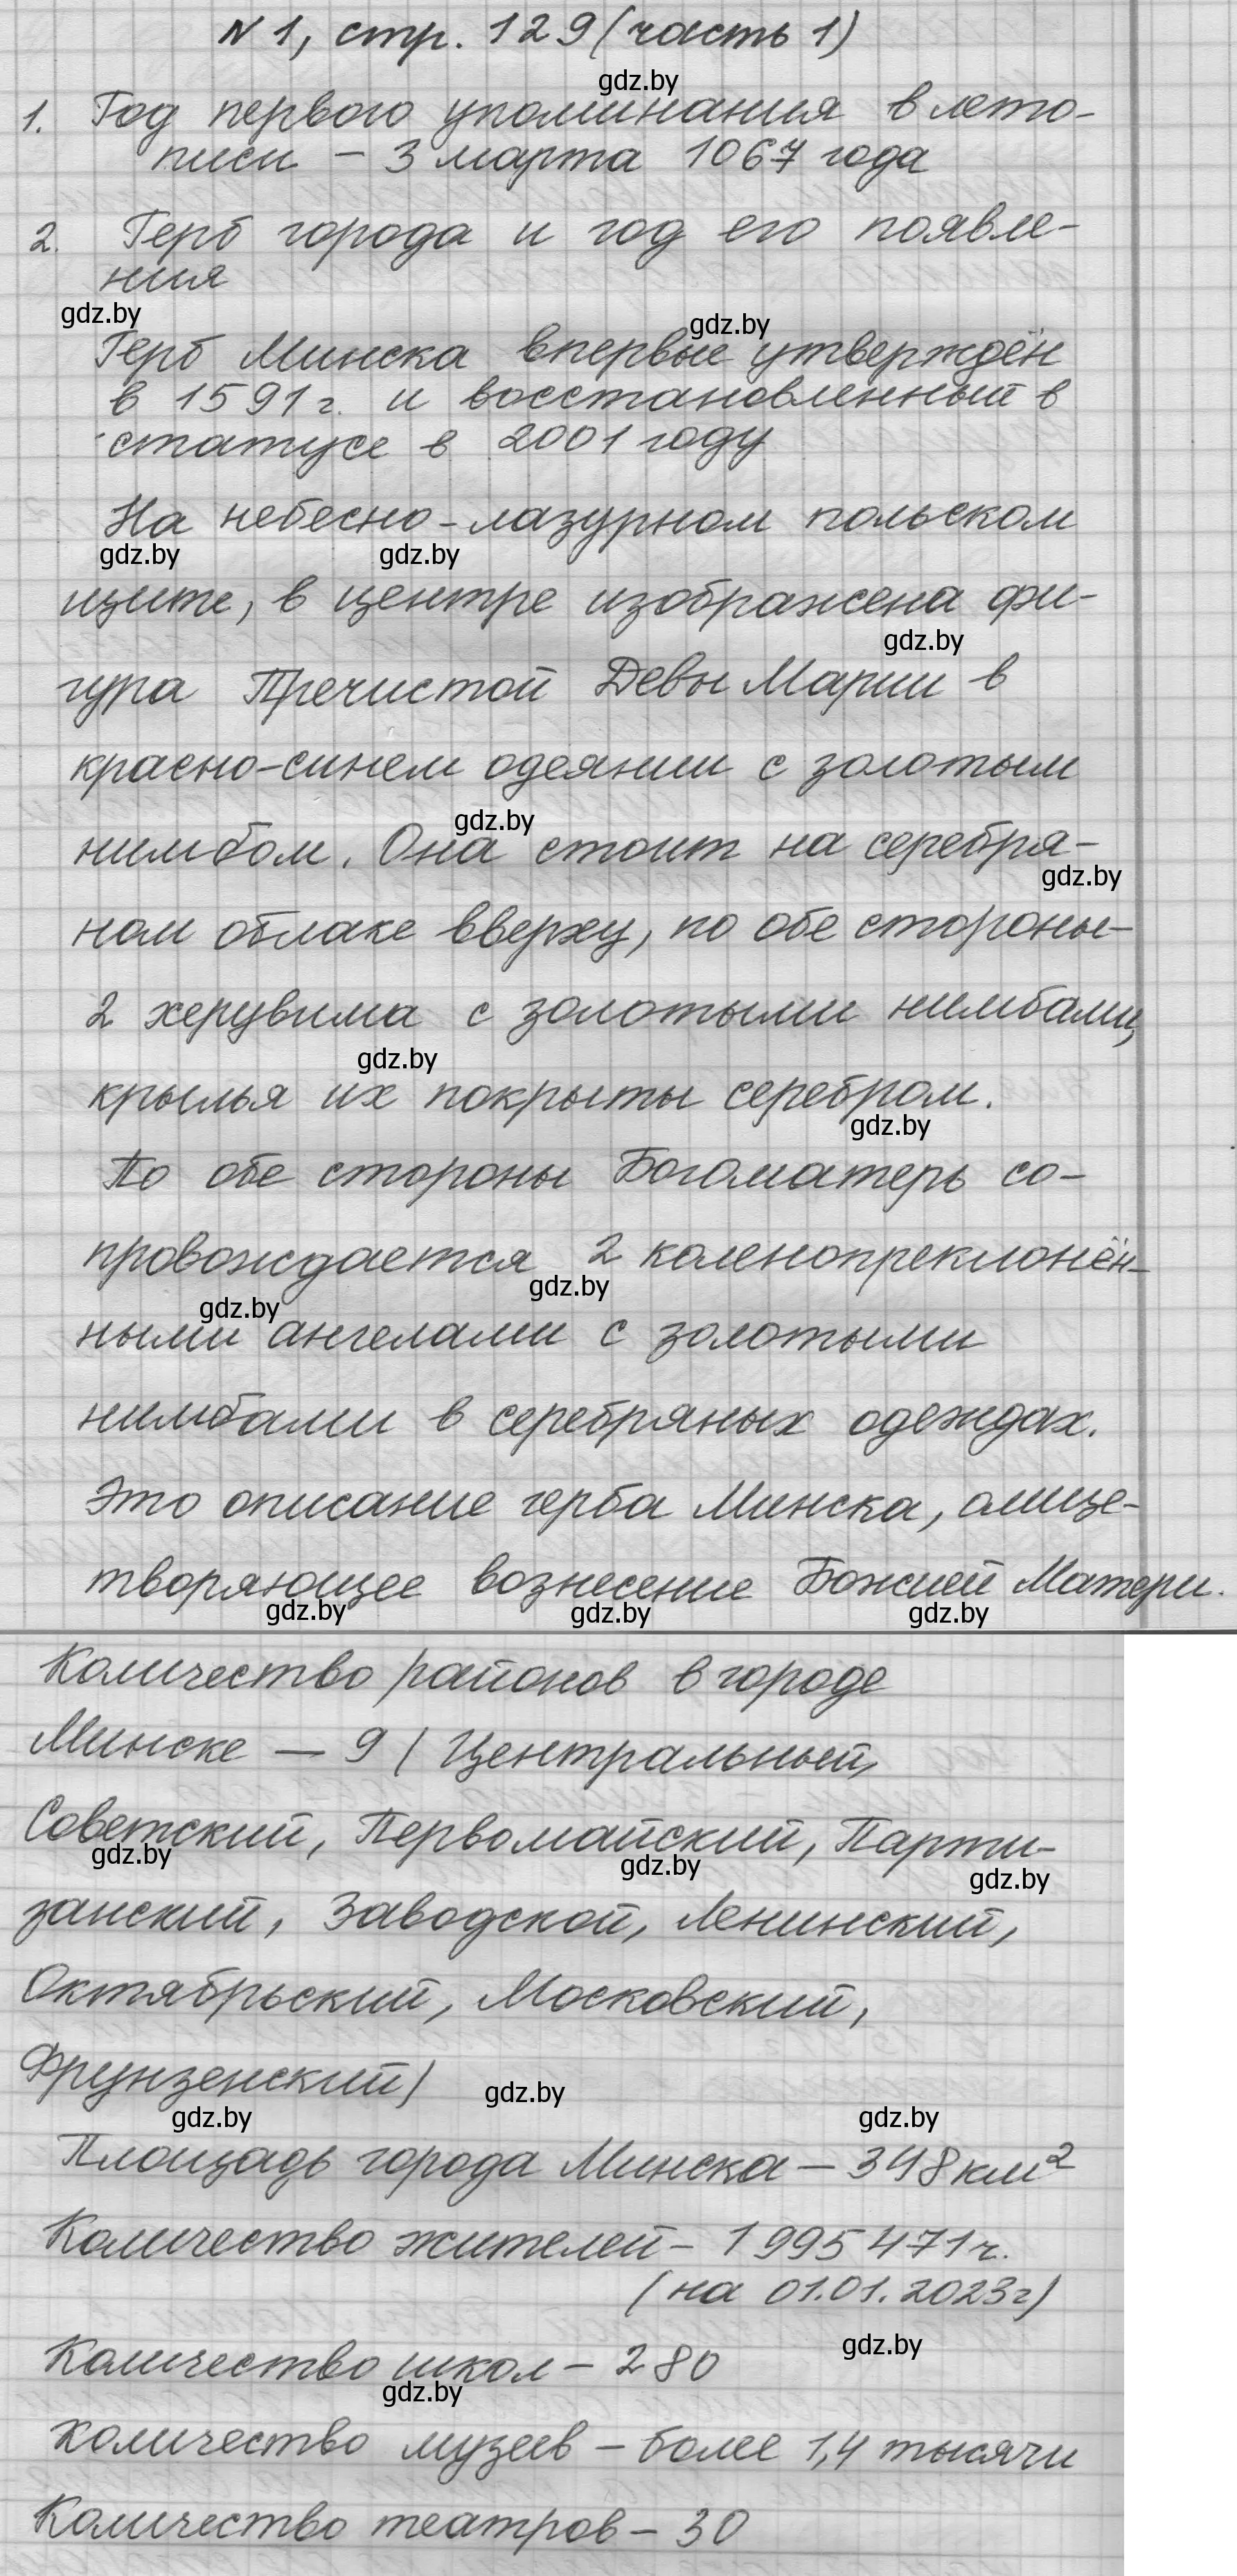 N 1, стр. 129 (часть 1)
gdz.by
1. Год первого упоминания в лето-
писи – 3 марта 1067 года
2. Герб города и год его появле-
ния
gdz.by
gdz.by
Герб Минска впервые утверждён
в 1591 г. и восстановленный в
статусе в 2001 году
На небесно-лазурном польском
gdz.by gdz.by
щите, в центре изображена фи-
gdz.by
гура Пречистой Девы Марии в
красно-синем одеянии с золотым
gdz.by
нимбом. Она стоит на серебря-
gdz.by
ном облаке вверху, по обе стороны –
2 херувима с золотыми нимбами,
gdz.by
крылья их покрыты серебром.
gdz.by
По обе стороны Богоматерь со-
провождается 2 коленопреклонён-
gdz.by
gdz.by
ными ангелами с золотыми
нимбами в серебряных одеждах.
Это описание герба Минска, олице-
творяющее вознесение Божией Матери.
gdz.by gdz.by gdz.by
Количество районов в городе
Минске — 9 (Центральный,
Советский, Первомайский, Парти-
gdz.by gdz.by gdz.by
занский, Заводской, Ленинский,
Октябрьский, Московский,
Фрунзенский)
gdz.by
gdz.by gdz.by
Площадь города Минска – 348 км²
Количество жителей – 1 995 471 ч.
(на 01.01.2023г)
gdz.by
Количество школ – 280
gdz.by
Количество музеев – более 1,4 тысячи
Количество театров – 30